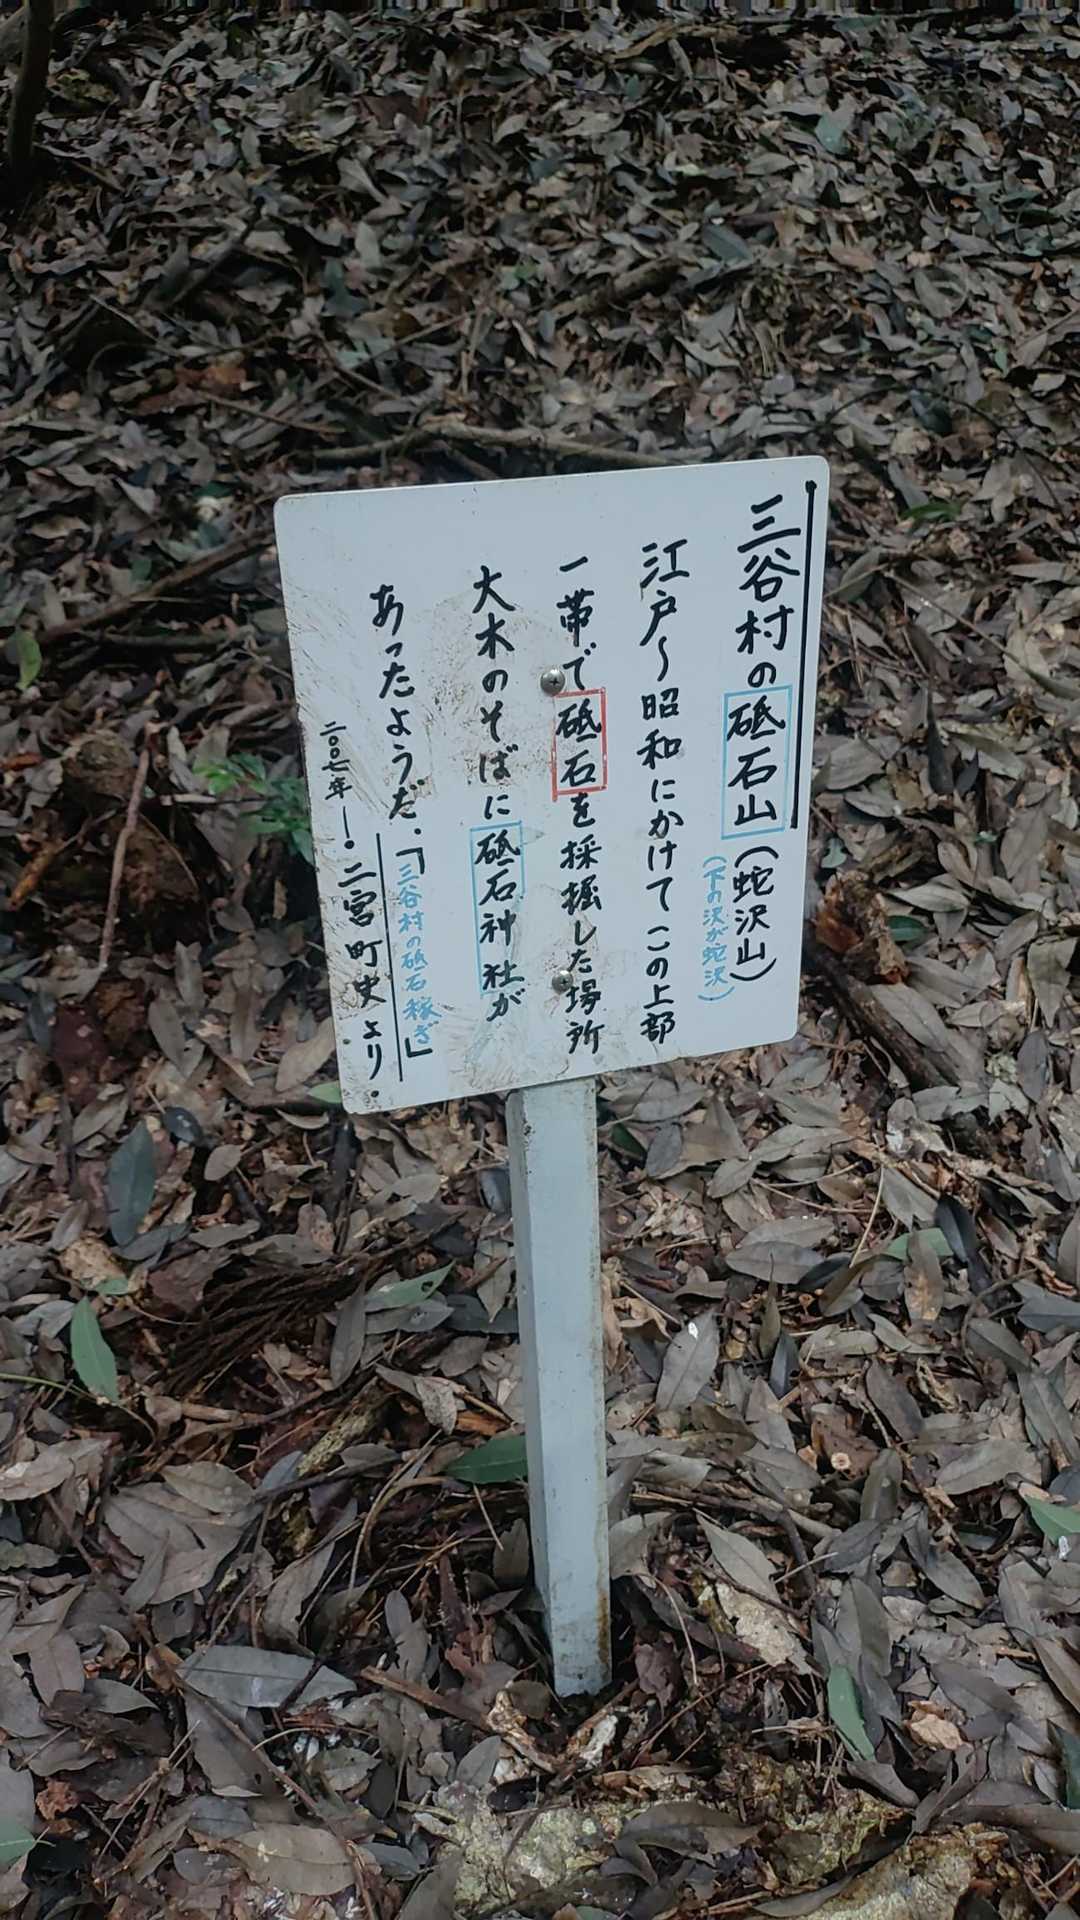 三谷村の砥石山(蛇沢山)
(下の沢が蛇沢)
江戸～昭和にかけてこの上部
一帯で砥石を採掘した場所
大木のそばに砥石神社が
あったようだ.「三谷村の砥石稼ぎ」
二〇〇七年ー・二宮町史より.